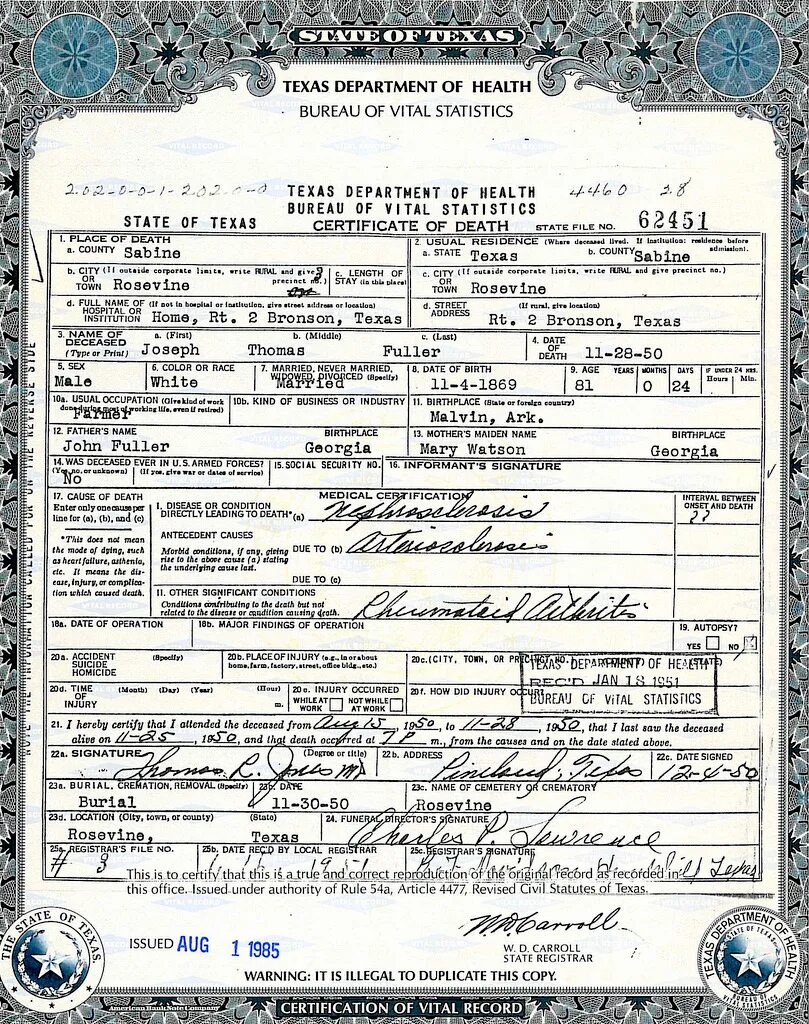 STATE OF TEXAS
TEXAS DEPARTMENT OF HEALTH
BUREAU OF VITAL STATISTICS
202-0-0-1-202-0-0 TEXAS DEPARTMENT OF HEALTH 4460 28
BUREAU OF VITAL STATISTICS
STATE OF TEXAS CERTIFICATE OF DEATH STATE FILE NO. 62451
1. PLACE OF DEATH 2. USUAL RESIDENCE (Where deceased lived. If institution: residence before admission).
a. COUNTY Sabine a. STATE Texas b. COUNTY Sabine
b. CITY (If outside corporate limits, write RURAL and give precinct no.) c. LENGTH OF STAY (in this place) c. CITY (If outside corporate limits, write RURAL and give precinct no.)
OR TOWN Rosevine 3 OR TOWN Rosevine
d. FULL NAME OF (If not in hospital or institution, give street address or location) d. STREET ADDRESS (If rural, give location)
HOSPITAL OR INSTITUTION Home, Rt. 2 Bronson, Texas Rt. 2 Bronson, Texas
3. NAME OF DECEASED a. (First) b. (Middle) c. (Last) 4. DATE OF DEATH 11-28-50
(Type or Print) Joseph Thomas Fuller
5. SEX 6. COLOR OR RACE 7. MARRIED, NEVER MARRIED, WIDOWED, DIVORCED (Specify) 8. DATE OF BIRTH 9. AGE YEARS MONTHS DAYS IF UNDER 24 HRS. Hours Min.
Male White Married 11-4-1869 81 0 24
10a. USUAL OCCUPATION (Give kind of work done during most of working life, even if retired) 10b. KIND OF BUSINESS OR INDUSTRY 11. BIRTHPLACE (State or foreign country)
Farmer Malvin, Ark.
12. FATHER'S NAME BIRTHPLACE 13. MOTHER'S MAIDEN NAME BIRTHPLACE
John Fuller Georgia Mary Watson Georgia
14. WAS DECEASED EVER IN U.S. ARMED FORCES? 15. SOCIAL SECURITY NO. 16. INFORMANT'S SIGNATURE
(Yes, no, or unknown) (If yes, give war or dates of service)
No
17. CAUSE OF DEATH MEDICAL CERTIFICATION INTERVAL BETWEEN ONSET AND DEATH
Enter only one cause per line for (a), (b), and (c)
I. DISEASE OR CONDITION DIRECTLY LEADING TO DEATH* (a) Nephrosclerosis ??
*This does not mean the mode of dying, such as heart failure, asthenia, etc. It means the disease, injury, or complication which caused death.
ANTECEDENT CAUSES
Morbid conditions, if any, giving rise to the above cause (a) stating the underlying cause last. DUE TO (b) Arteriosclerosis
DUE TO (c)
11. OTHER SIGNIFICANT CONDITIONS
Conditions contributing to the death but not related to the disease or condition causing death. Rheumatoid Arthritis
18a. DATE OF OPERATION 18b. MAJOR FINDINGS OF OPERATION 19. AUTOPSY?
YES NO
20a. ACCIDENT SUICIDE HOMICIDE (Specify) 20b. PLACE OF INJURY (e.g., in or about home, farm, factory, street, office bldg., etc.) 20c. (CITY, TOWN, OR PRECINCT NO.) (STATE)
TEXAS DEPARTMENT OF HEALTH
REC'D JAN 18 1951
BUREAU OF VITAL STATISTICS
20d. TIME OF INJURY (Month) (Day) (Year) (Hour) m. 20e. INJURY OCCURRED WHILE AT WORK NOT WHILE AT WORK 20f. HOW DID INJURY OCCUR?
21. I hereby certify that I attended the deceased from Aug 15, 1950, to 11-28, 1950, that I last saw the deceased
alive on 11-25, 1950, and that death occurred at 7 P m., from the causes and on the date stated above.
22a. SIGNATURE (Degree or title) 22b. ADDRESS 22c. DATE SIGNED
Thomas R. Jones MD Pineland, Texas 12-4-50
23a. BURIAL, CREMATION, REMOVAL (Specify) 23b. DATE 23c. NAME OF CEMETERY OR CREMATORY
Burial 11-30-50 Rosevine
23d. LOCATION (City, town, or county) (State) 24. FUNERAL DIRECTOR'S SIGNATURE
Rosevine, Texas Charles P. Lawrence
25a. REGISTRAR'S FILE NO. 25b. DATE REC'D BY LOCAL REGISTRAR 25c. REGISTRAR'S SIGNATURE
# 3 1951 Texas
This is to certify that this is a true and correct reproduction of the original record as recorded in
this office. Issued under authority of Rule 54a, Article 4477, Revised Civil Statutes of Texas.
W D Carroll
ISSUED AUG 1 1985
W. D. CARROLL
STATE REGISTRAR
WARNING: IT IS ILLEGAL TO DUPLICATE THIS COPY.
THE STATE OF TEXAS
TEXAS DEPARTMENT OF HEALTH
STATE OF TEXAS
American Bank Note Company
CERTIFICATION OF VITAL RECORD